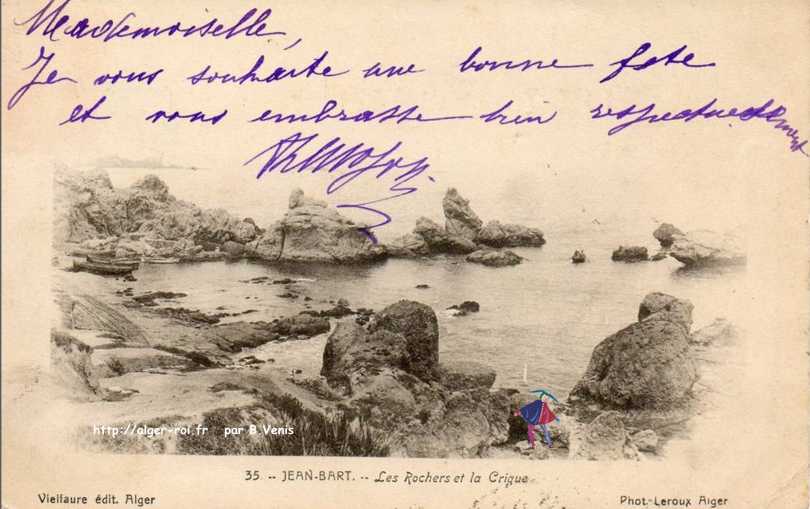 Mademoiselle,
Je vous souhaite une bonne fete
et vous embrasse bien respectueusement
http://alger-roi.fr par B.Venis
35 -- JEAN-BART. -- Les Rochers et la Crique
Vielfaure édit. Alger
Phot. Leroux Alger